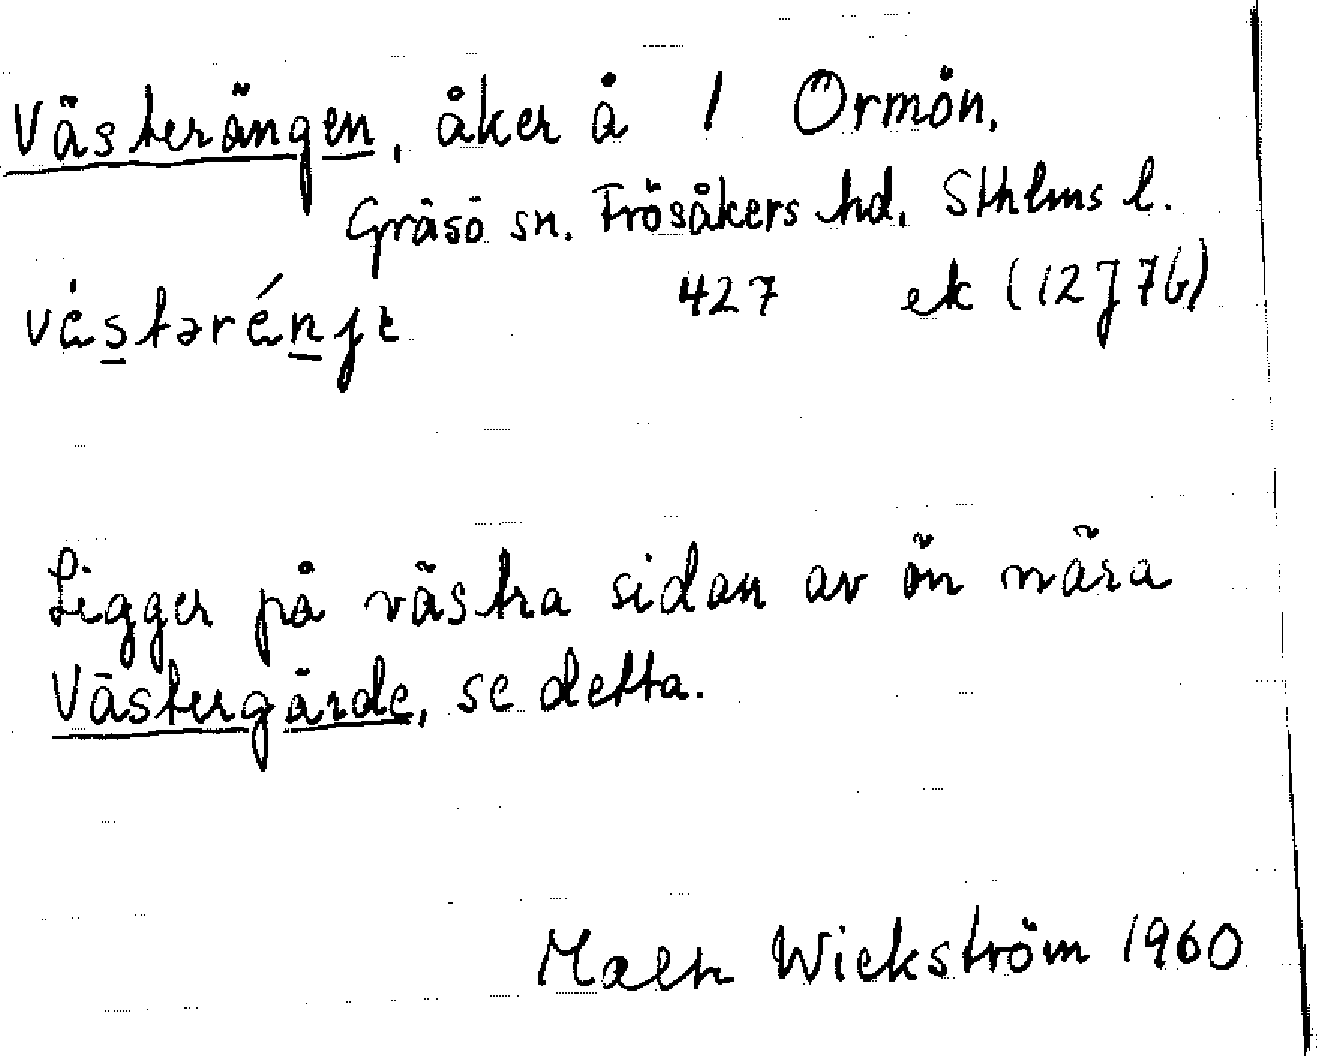 Västerängen, åker å 1 Ormön.
Gräsö sn. Frösåkers hd. Sthlms l.
427 ek (12J7b)
Ligger på västra sidan av ön nära
Västergärde, se detta.
Wickström 1960